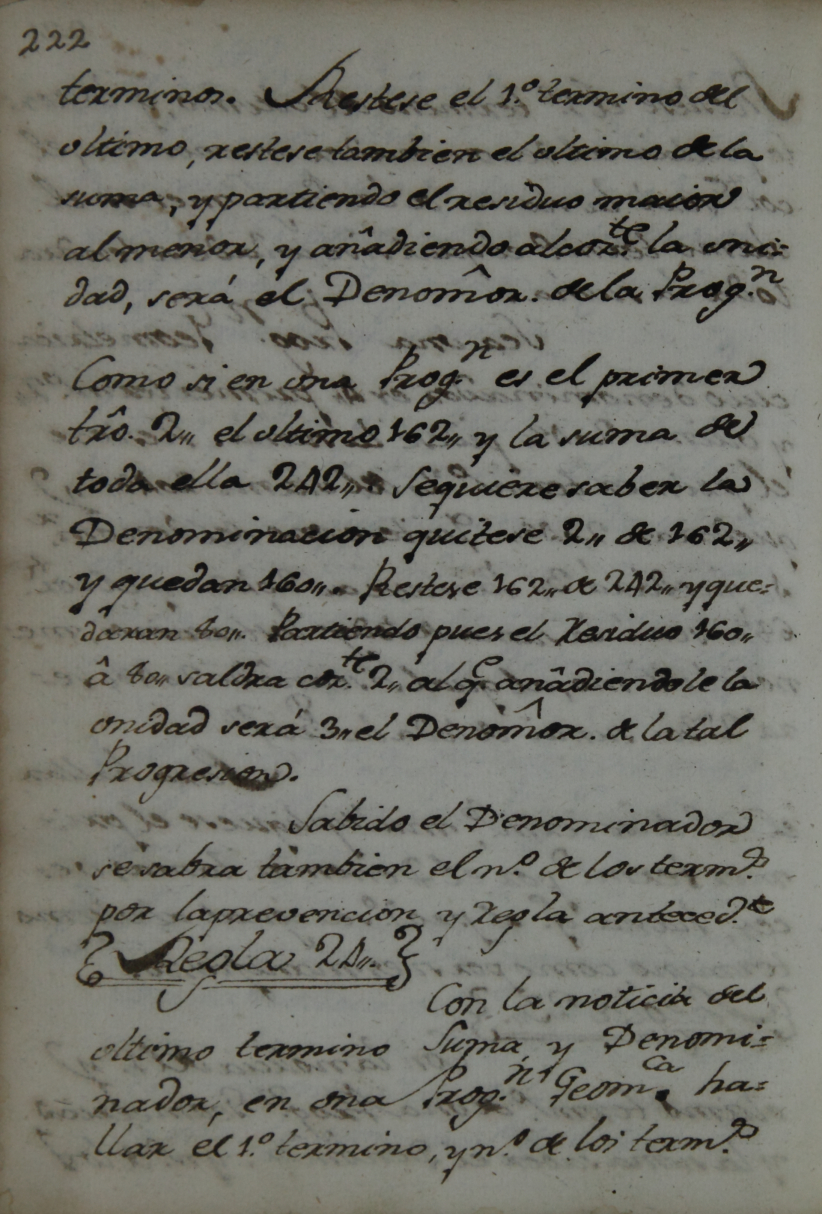 222
terminos. Restese el 1.º termino del
ultimo, restese tambien el ultimo de la
suma, y partiendo el residuo maior
al menor, y añadiendo al cor.te la uni=
dad, será el Denom̂or. de la Prog.n
Como si en una Prog.n es el primer
trô. 2,, el ultimo 162,, y la suma de
toda ella 242,,. Sequiere saber la
Denominacion quitese 2,, de 162,,
y quedan 160,,. Restese 162,, de 242,, y que=
daran 80,,. Partiendo pues el Residuo 160,,
â 80,, saldra cor.te 2,, al q.e añadiendole la
unidad será 3,, el Denom̂or. de la tal
Progresion.
Sabido el Denominador
se sabra tambien el n.º de los term.s
por la prevencion y Regla anteced.te
Regla 24,,.
Con la noticia del
ultimo termino Suma, y Denomi=
nador, en una Prog.n Geom.ca ha=
llar el 1.º termino, y n.º de los term.s